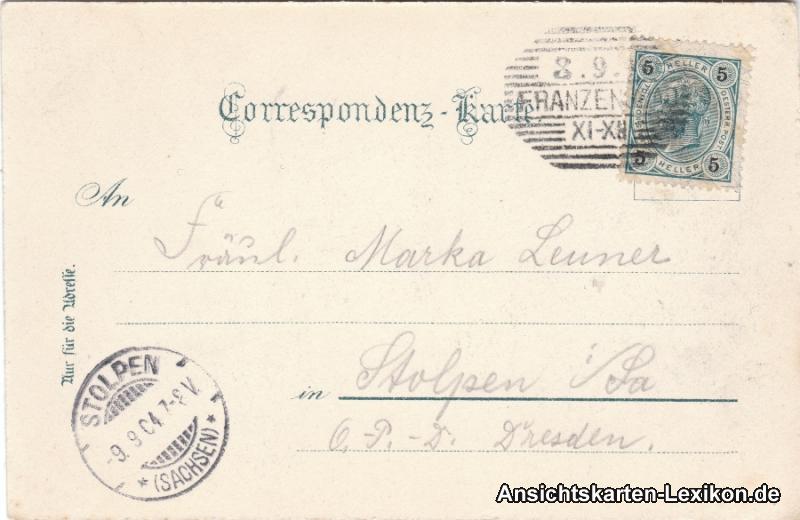 8.9.
FRANZENS
XI-XII
5 HELLER 5
OESTERR. POST
5 HELLER 5
Correspondenz-Karte.
An
Fräul. Marka Leuner
in Stolpen i/Sa
O.-P.-D. Dresden.
Nur für die Adresse.
STOLPEN
-9. 9 04. 7-8 V.
* (SACHSEN) *
Ansichtskarten-Lexikon.de